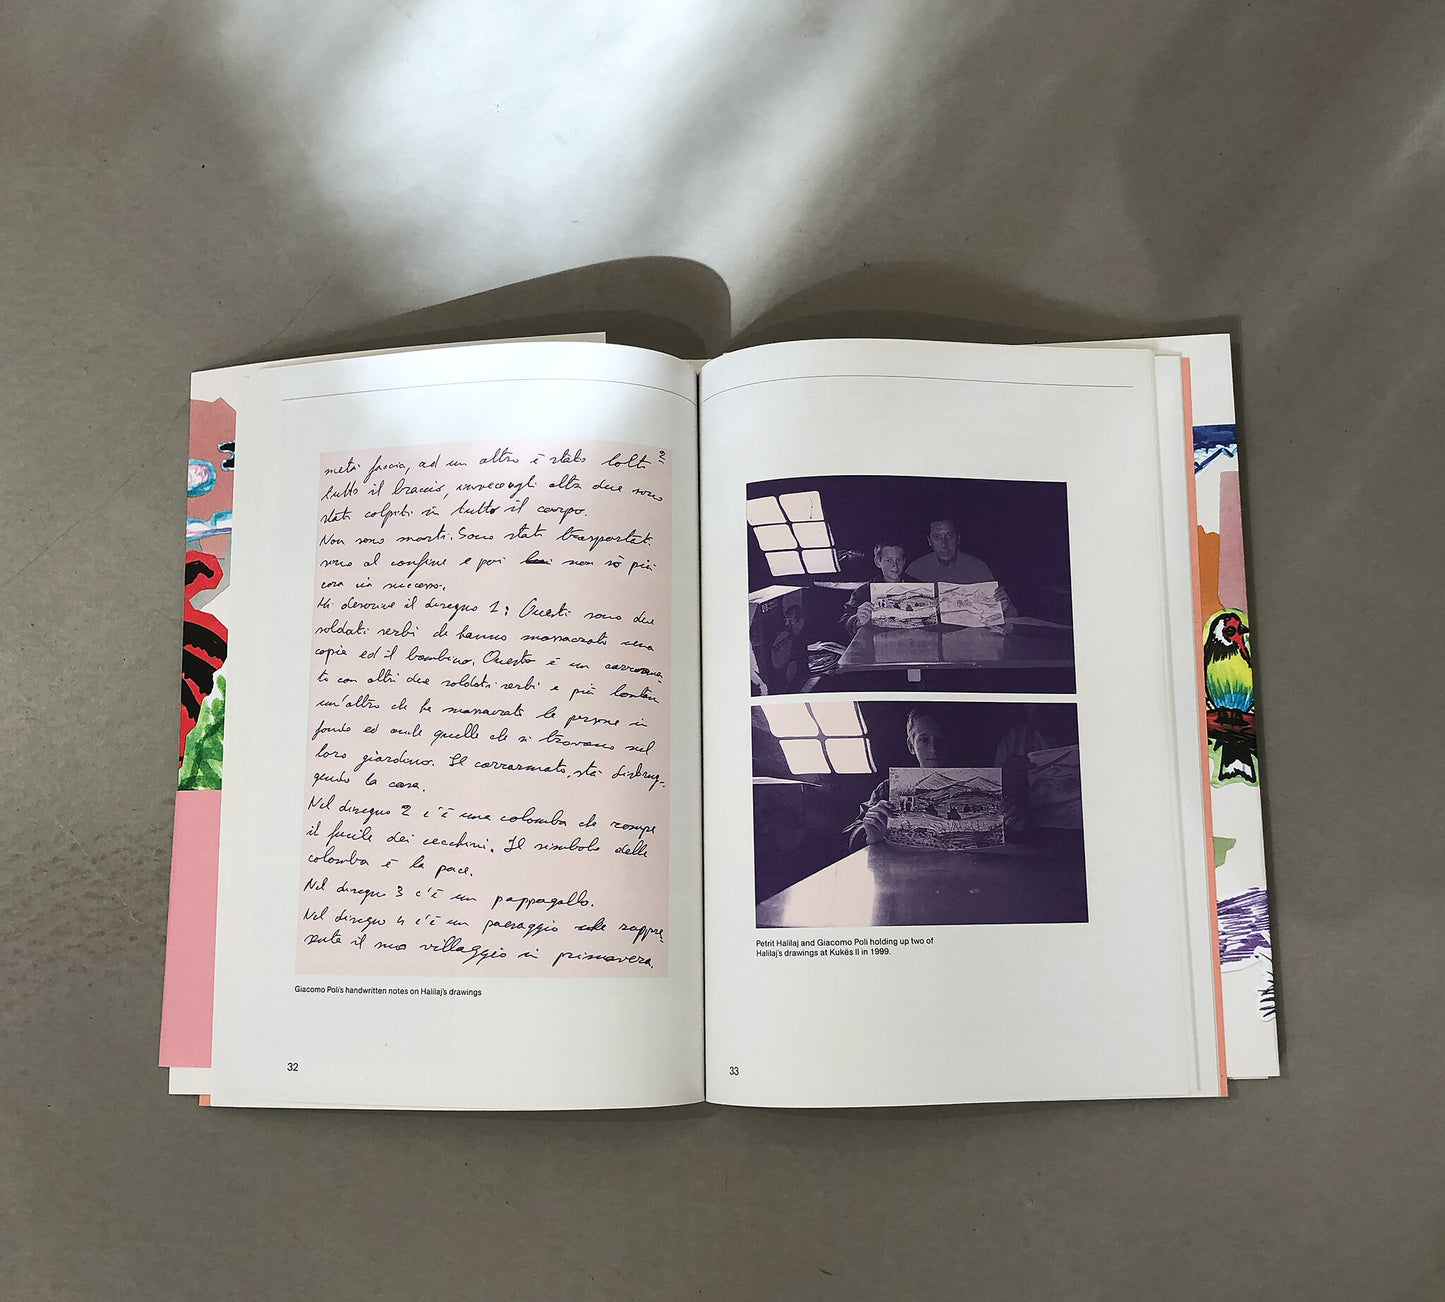 2
metà faccia, ad un altro è stato tolto
tutto il braccio, invece gli altri due sono
stati colpiti in tutto il corpo.
Non sono morti. Sono stati trasportati
sino al confine e poi non sò più
cosa sia successo.
Mi descrive il disegno 1: Questi sono due
soldati serbi che hanno massacrato una
copia ed il bambino. Questo è un carroarma
to con altri due soldati serbi e più lontan
un'altro che ha massacrato le persone in
fondo ed anche quelle che si trovano nel
loro giardino. Il carrarmato, sta distrug-
gendo la casa.
Nel disegno 2 c'è una colomba che rompe
il fucile dei cecchini. Il simbolo della
colomba è la pace.
Nel disegno 3 c'è un pappagallo.
Nel disegno 4 c'è un paesaggio che rappre-
senta il suo villaggio in primavera.
Giacomo Poli's handwritten notes on Halilaj's drawings
32
Petrit Halilaj and Giacomo Poli holding up two of
Halilaj's drawings at Kukës II in 1999.
33